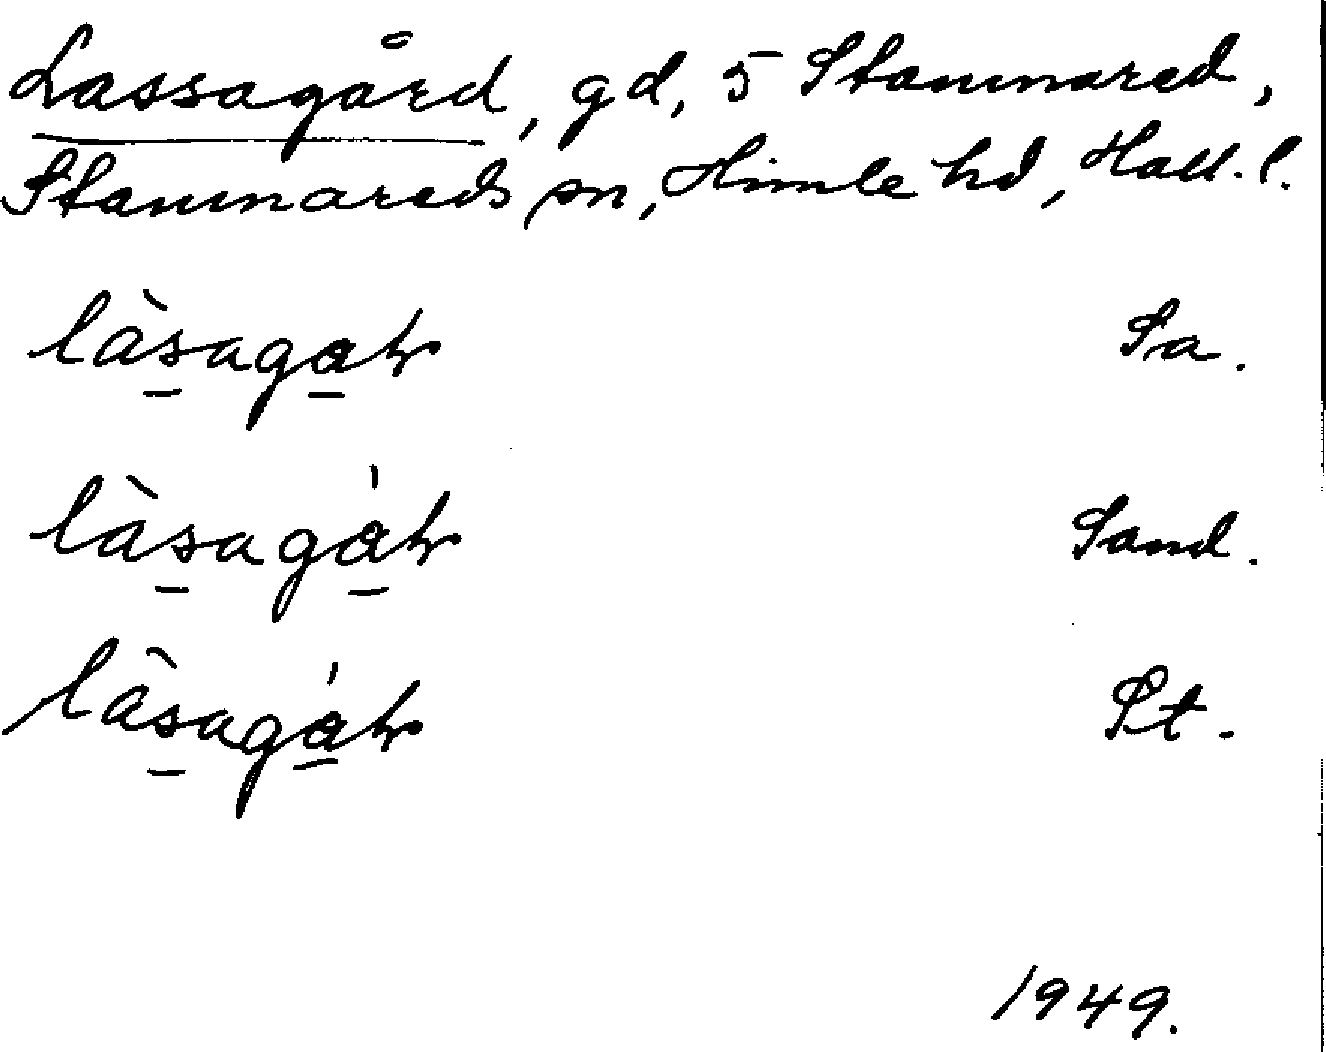 Lassagård, gd, 5 Stamnared,
Stamnareds sn, Himle hd, Hall. l.
làsagat Sa.
làsagát Sand.
làsagát St.
1949.